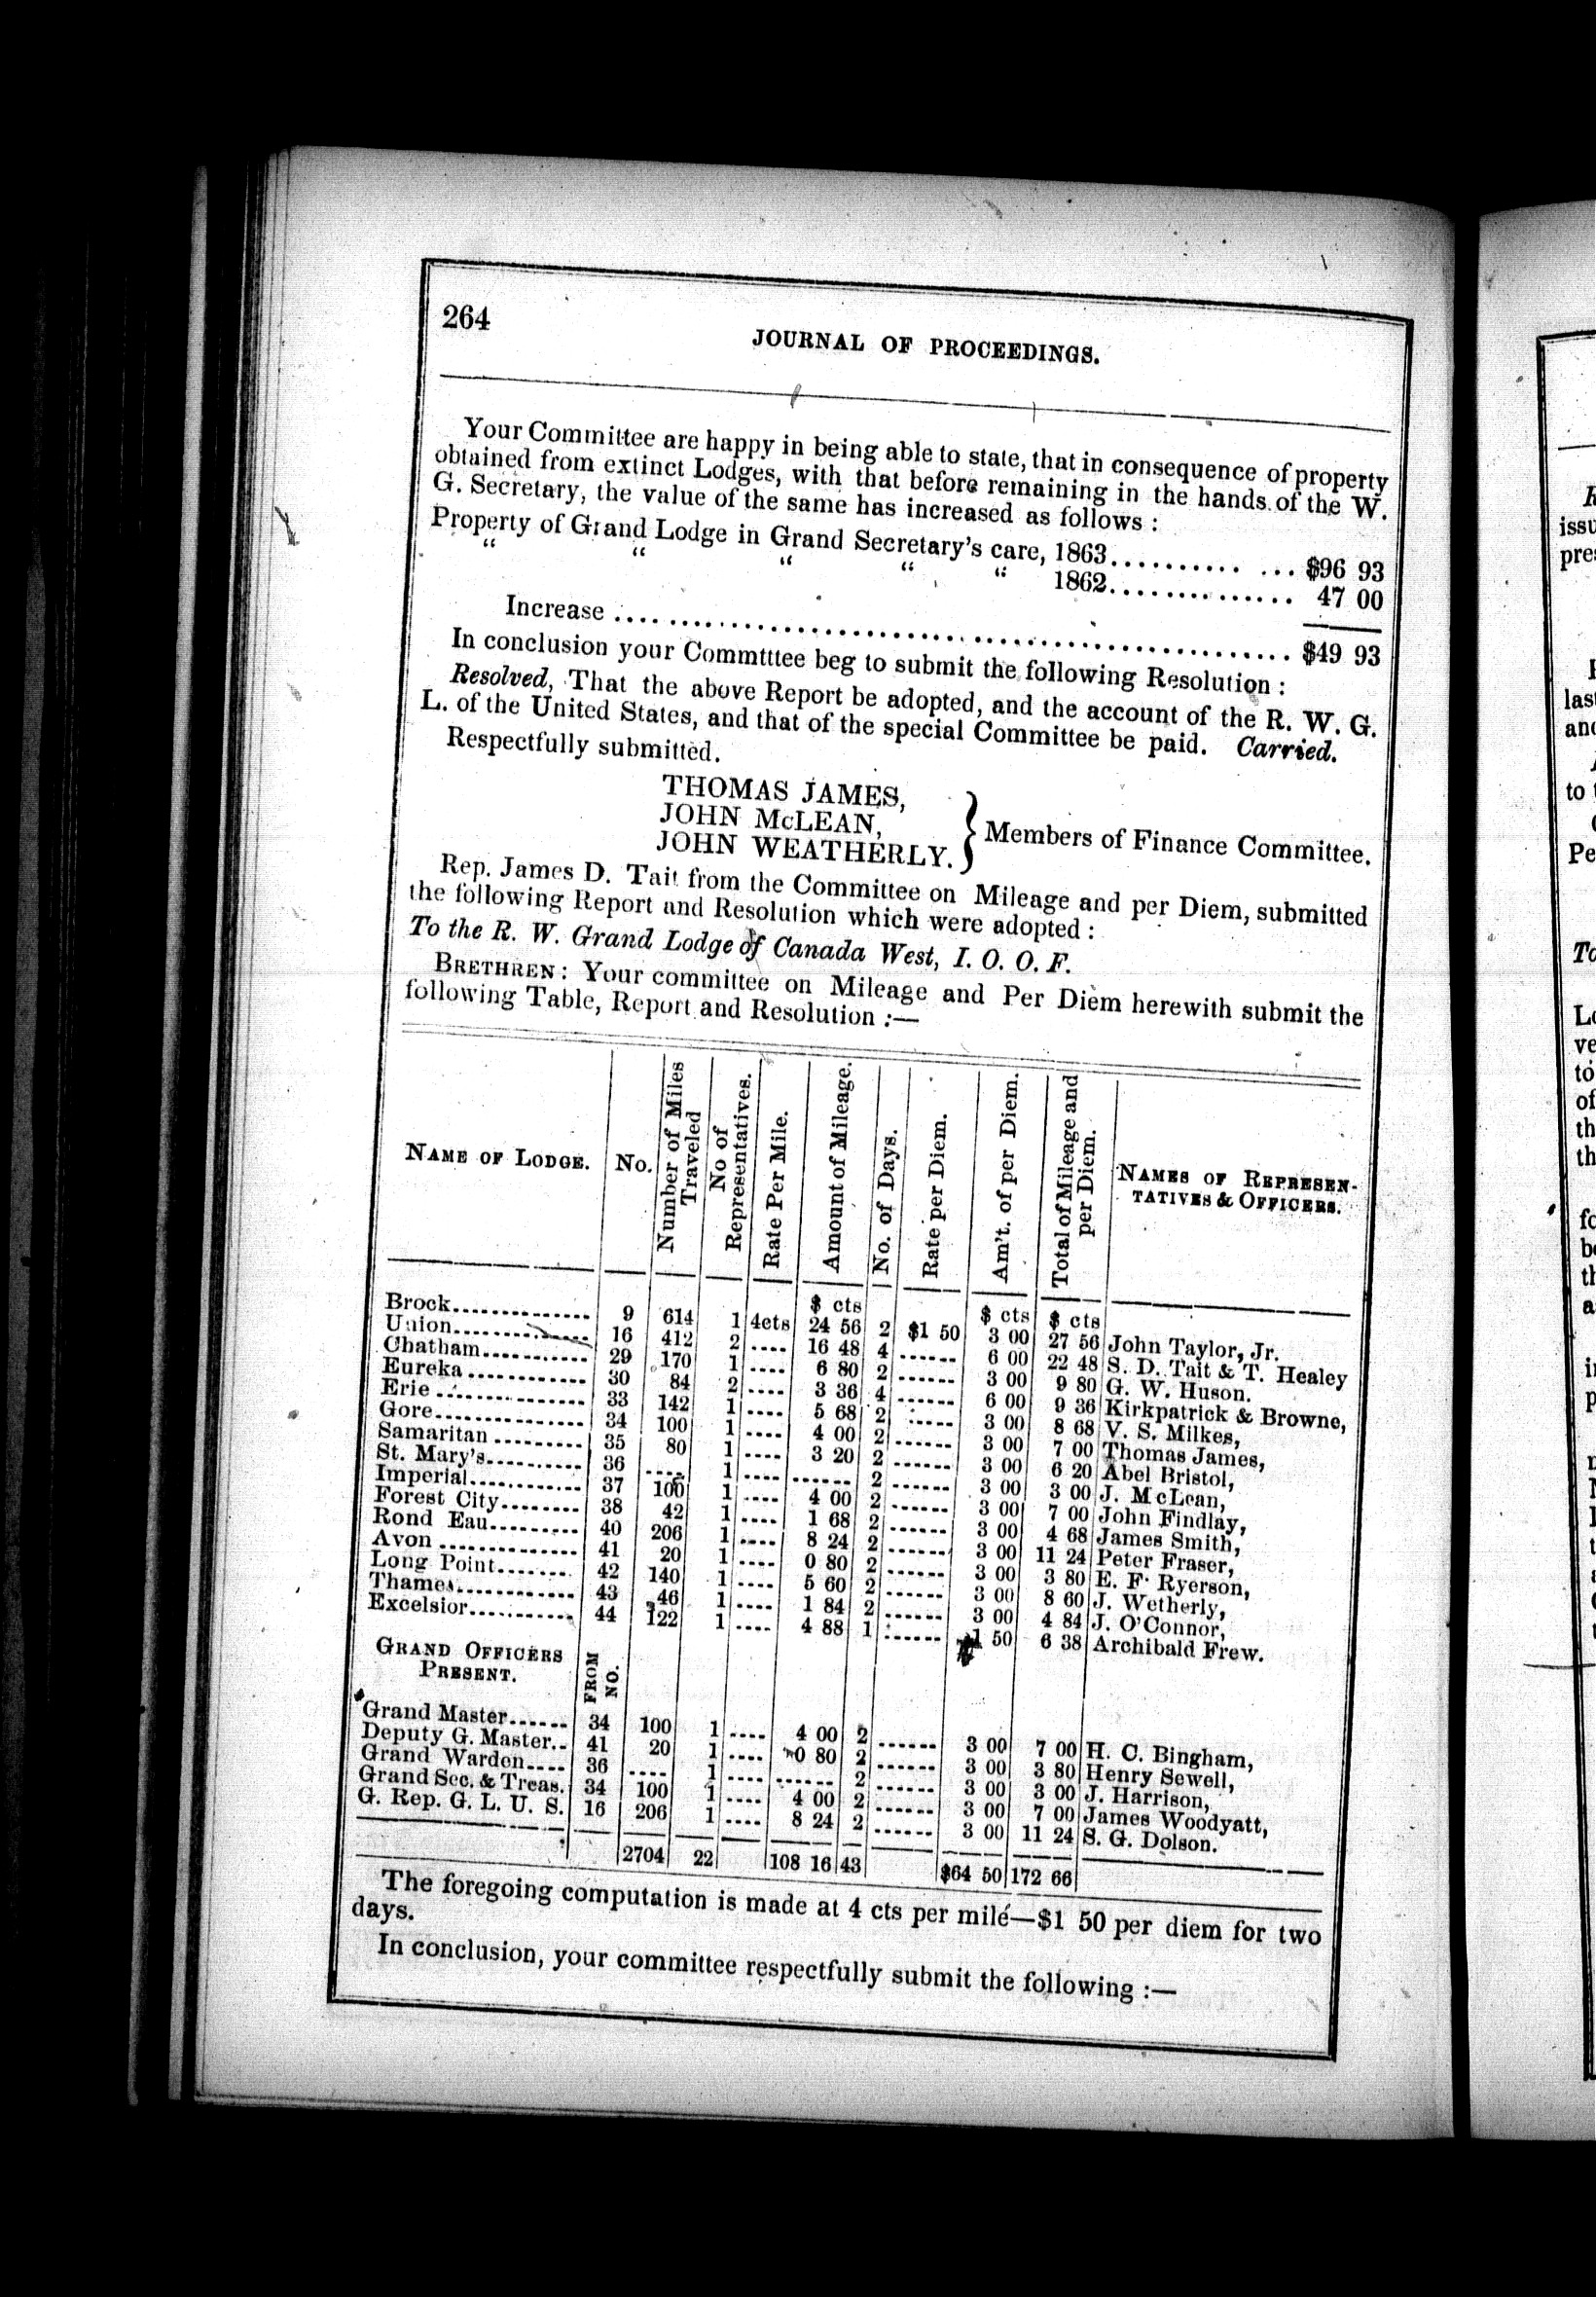 264
JOURNAL OF PROCEEDINGS.
Your Committee are happy in being able to state, that in consequence of property
obtained from extinct Lodges, with that before remaining in the hands of the W.
G. Secretary, the value of the same has increased as follows :
Property of Grand Lodge in Grand Secretary's care, 1863.......... ... $96 93
“ “ “ “ “ 1862.............. 47 00
Increase ............................................................ $49 93
In conclusion your Commtttee beg to submit the following Resolution :
Resolved, That the above Report be adopted, and the account of the R. W. G.
L. of the United States, and that of the special Committee be paid. Carried.
Respectfully submitted.
THOMAS JAMES,
JOHN McLEAN,
JOHN WEATHERLY.
} Members of Finance Committee.
Rep. James D. Tait from the Committee on Mileage and per Diem, submitted
the following Report and Resolution which were adopted :
To the R. W. Grand Lodge of Canada West, I. O. O. F.
BRETHREN: Your committee on Mileage and Per Diem herewith submit the
following Table, Report and Resolution :—
NAME OF LODGE. | No. | Number of Miles Traveled | No of Representatives. | Rate Per Mile. | Amount of Mileage. | No. of Days. | Rate per Diem. | Am't. of per Diem. | Total of Mileage and per Diem. | NAMES OF REPRESEN-TATIVES & OFFICERS.
$ cts $ cts $ cts
Brock.............. 9 614 1 4cts 24 56 2 $1 50 3 00 27 56 John Taylor, Jr.
Union.............. 16 412 2 .... 16 48 4 ...... 6 00 22 48 S. D. Tait & T. Healey
Chatham........... 29 170 1 .... 6 80 2 ...... 3 00 9 80 G. W. Huson.
Eureka............ 30 84 2 .... 3 36 4 ...... 6 00 9 36 Kirkpatrick & Browne,
Erie .............. 33 142 1 .... 5 68 2 ...... 3 00 8 68 V. S. Milkes,
Gore............... 34 100 1 .... 4 00 2 ...... 3 00 7 00 Thomas James,
Samaritan ......... 35 80 1 .... 3 20 2 ...... 3 00 6 20 Abel Bristol,
St. Mary's.......... 36 .... 1 .... ...... 2 ...... 3 00 3 00 J. McLean,
Imperial............ 37 100 1 .... 4 00 2 ...... 3 00 7 00 John Findlay,
Forest City........ 38 42 1 .... 1 68 2 ...... 3 00 4 68 James Smith,
Rond Eau......... 40 206 1 .... 8 24 2 ...... 3 00 11 24 Peter Fraser,
Avon .............. 41 20 1 .... 0 80 2 ...... 3 00 3 80 E. F. Ryerson,
Long Point........ 42 140 1 .... 5 60 2 ...... 3 00 8 60 J. Wetherly,
Thames............ 43 46 1 .... 1 84 2 ...... 3 00 4 84 J. O'Connor,
Excelsior............ 44 122 1 .... 4 88 1 ...... 1 50 6 38 Archibald Frew.
GRAND OFFICERS PRESENT. FROM NO.
Grand Master...... 34 100 1 .... 4 00 2 ...... 3 00 7 00 H. C. Bingham,
Deputy G. Master.. 41 20 1 .... 0 80 2 ...... 3 00 3 80 Henry Sewell,
Grand Warden.... 36 .... 1 .... ...... 2 ...... 3 00 3 00 J. Harrison,
Grand Sec. & Treas. 34 100 1 .... 4 00 2 ...... 3 00 7 00 James Woodyatt,
G. Rep. G. L. U. S. 16 206 1 .... 8 24 2 ...... 3 00 11 24 S. G. Dolson.
2704 22 108 16 43 $64 50 172 66
The foregoing computation is made at 4 cts per mile—$1 50 per diem for two
days.
In conclusion, your committee respectfully submit the following :—